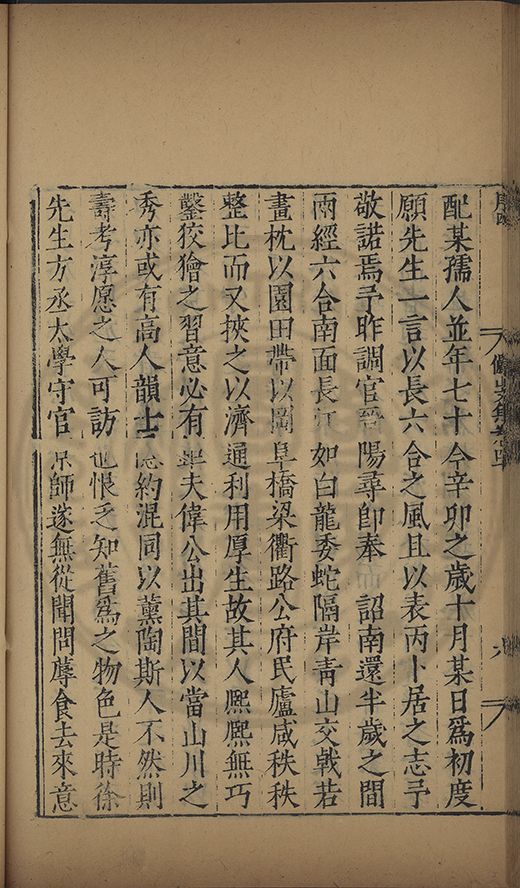 配某孺人並年七十今辛卯之歲十月某日爲初度
願先生一言以長六合之風且以表丙卜居之志予
敬諾焉予昨調官晉陽尋卽奉 詔南還半歲之間
兩經六合南面長江如白龍委蛇隔岸青山交戟若
畫枕以園田帶以岡阜橋梁衢路公府民廬咸秩秩
整比而又挾之以濟通利用厚生故其人熈熈無巧
鑿狡獪之習意必有 夫偉公出其間以當山川之
秀亦或有高人韻士 約混同以薰陶斯人不然則
壽考淳愿之人可訪也恨乏知舊爲之物色是時徐
先生方丞太學守官京師遂無從聞問蓐食去來意